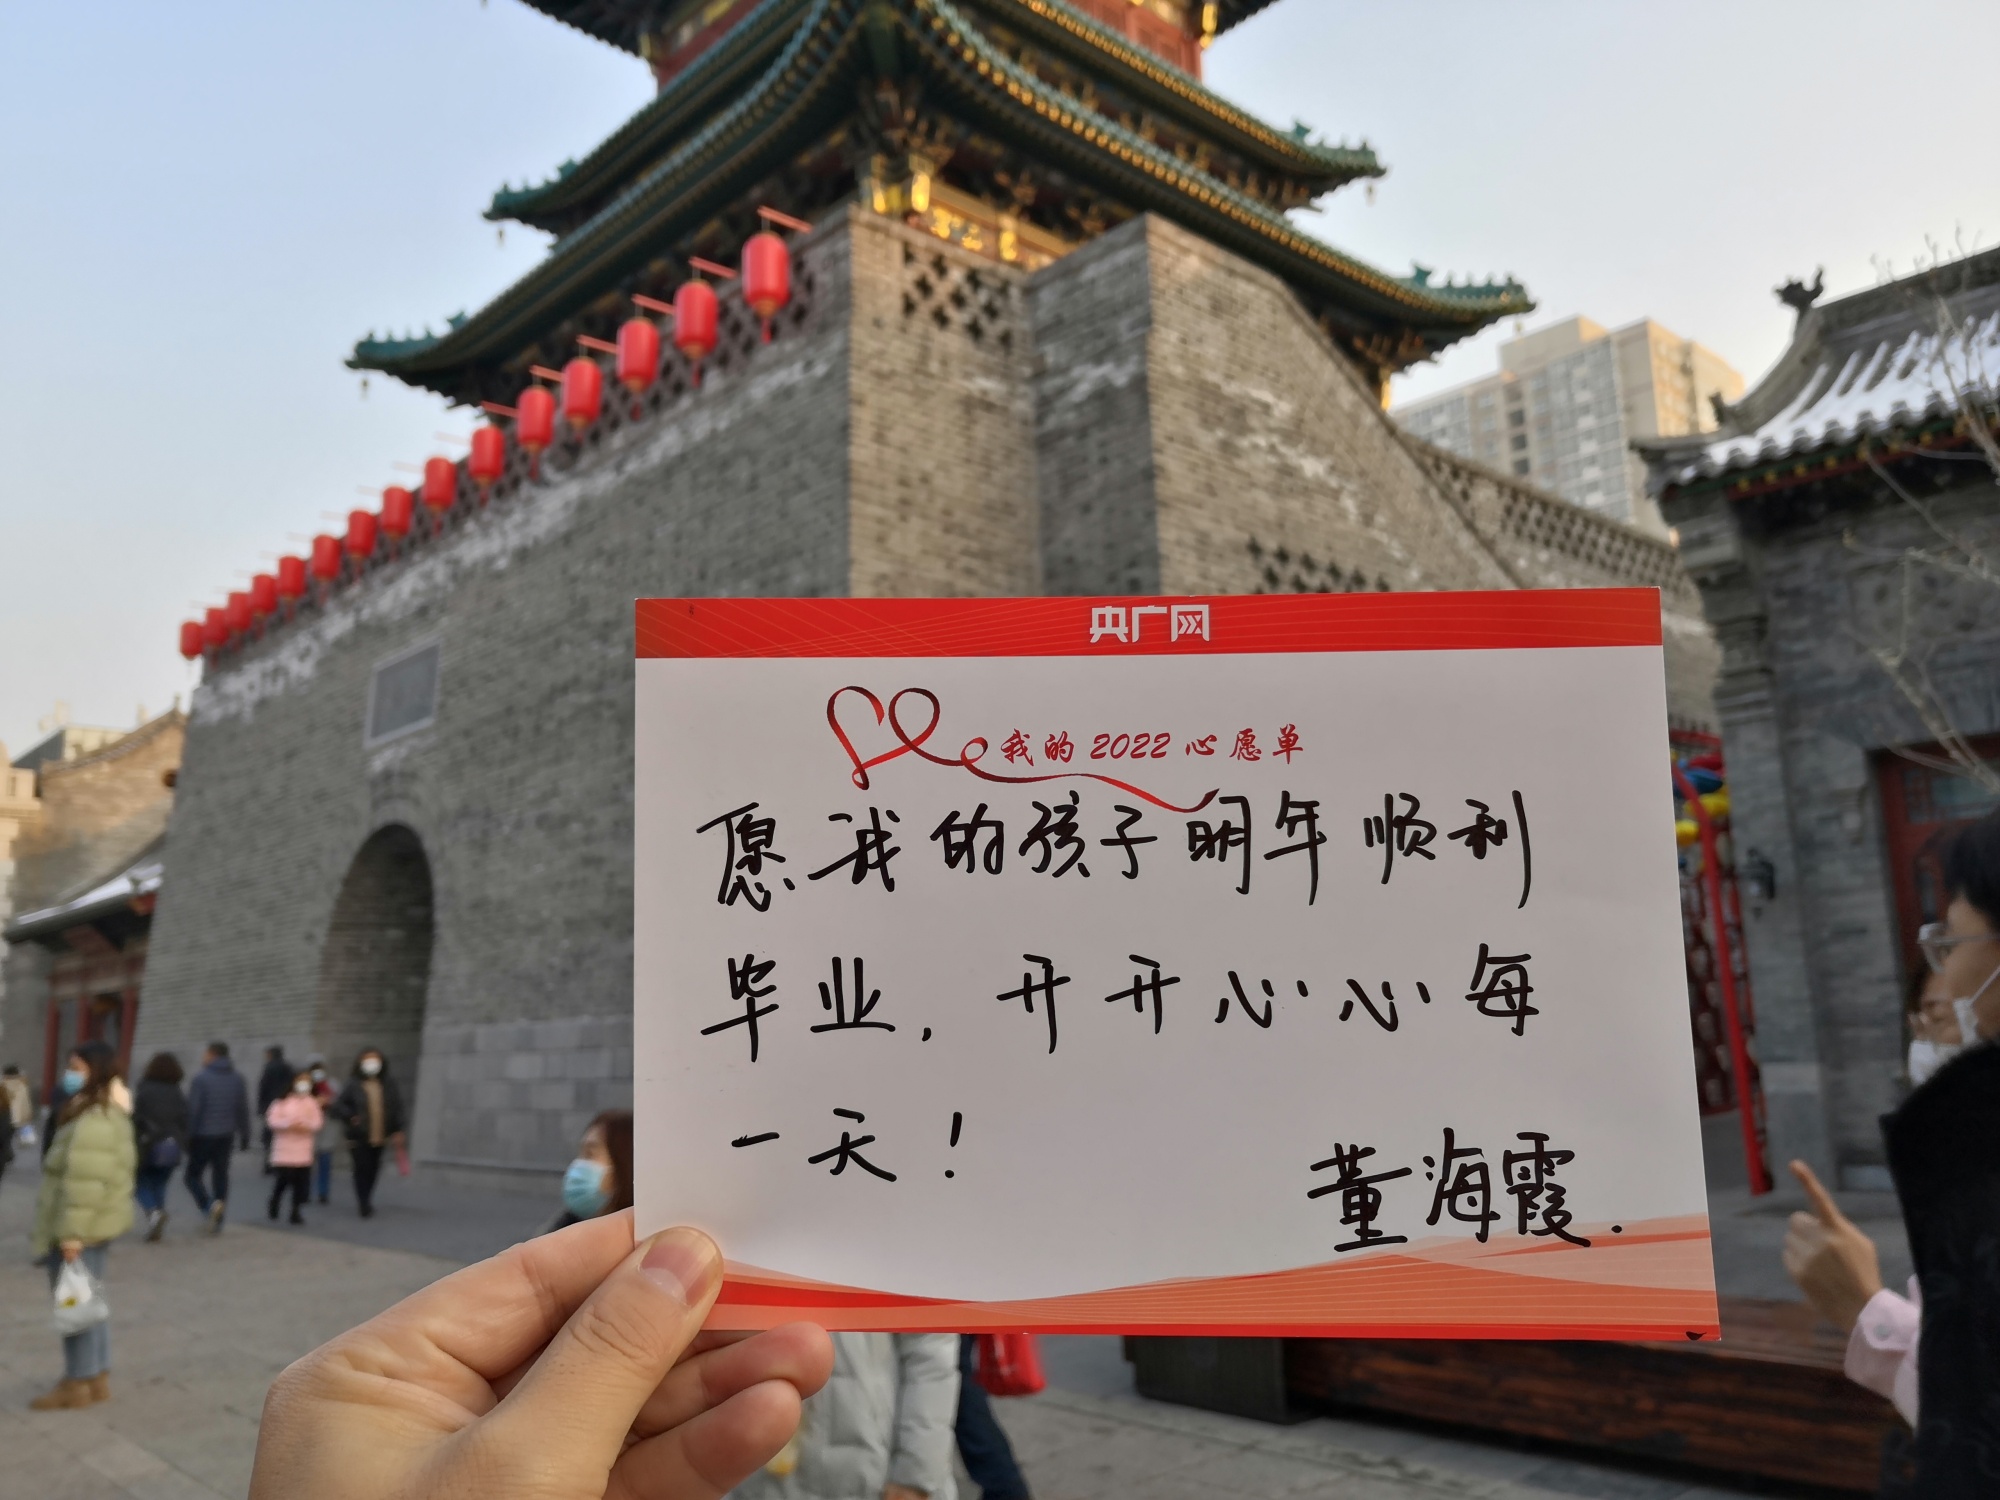 央广网
我的2022心愿单
愿我的孩子明年顺利
毕业，开开心心每
一天！
董海霞.